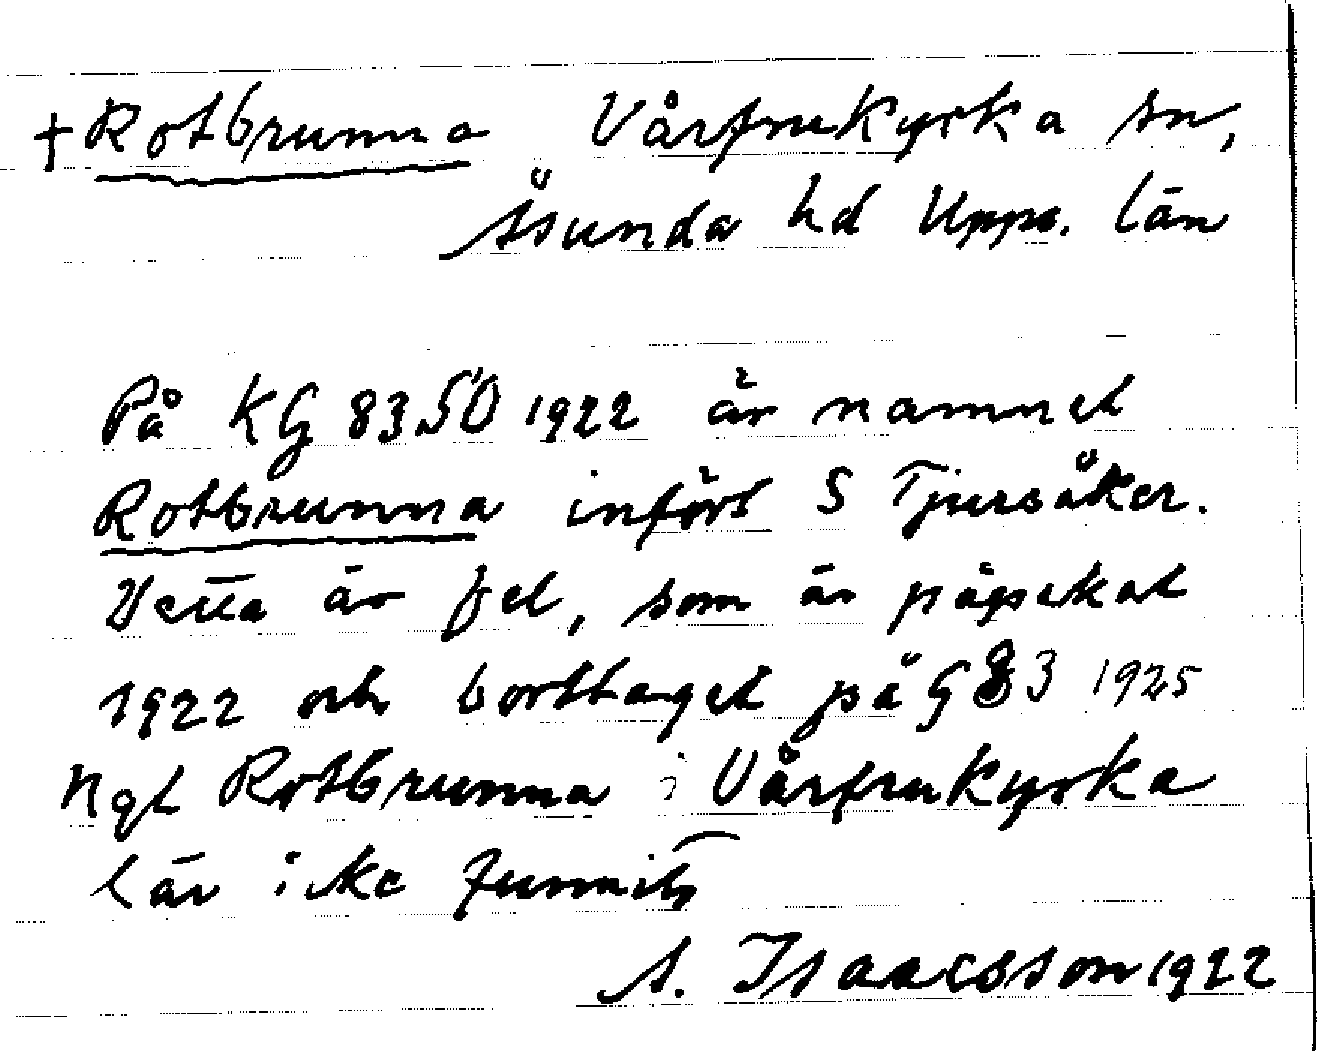 †Rotbrunna Vårfrukyrka sn,
Åsunda hd Upps. län
På KG 83 SÖ 1922 är namnet
Rotbrunna infört S Tjursåker.
Detta är fel, som är påpekat
1922 och borttaget på G 83 1925
Ngt Rotbrunna i Vårfrukyrka
lär icke funnits
A. Isaacsson 1922